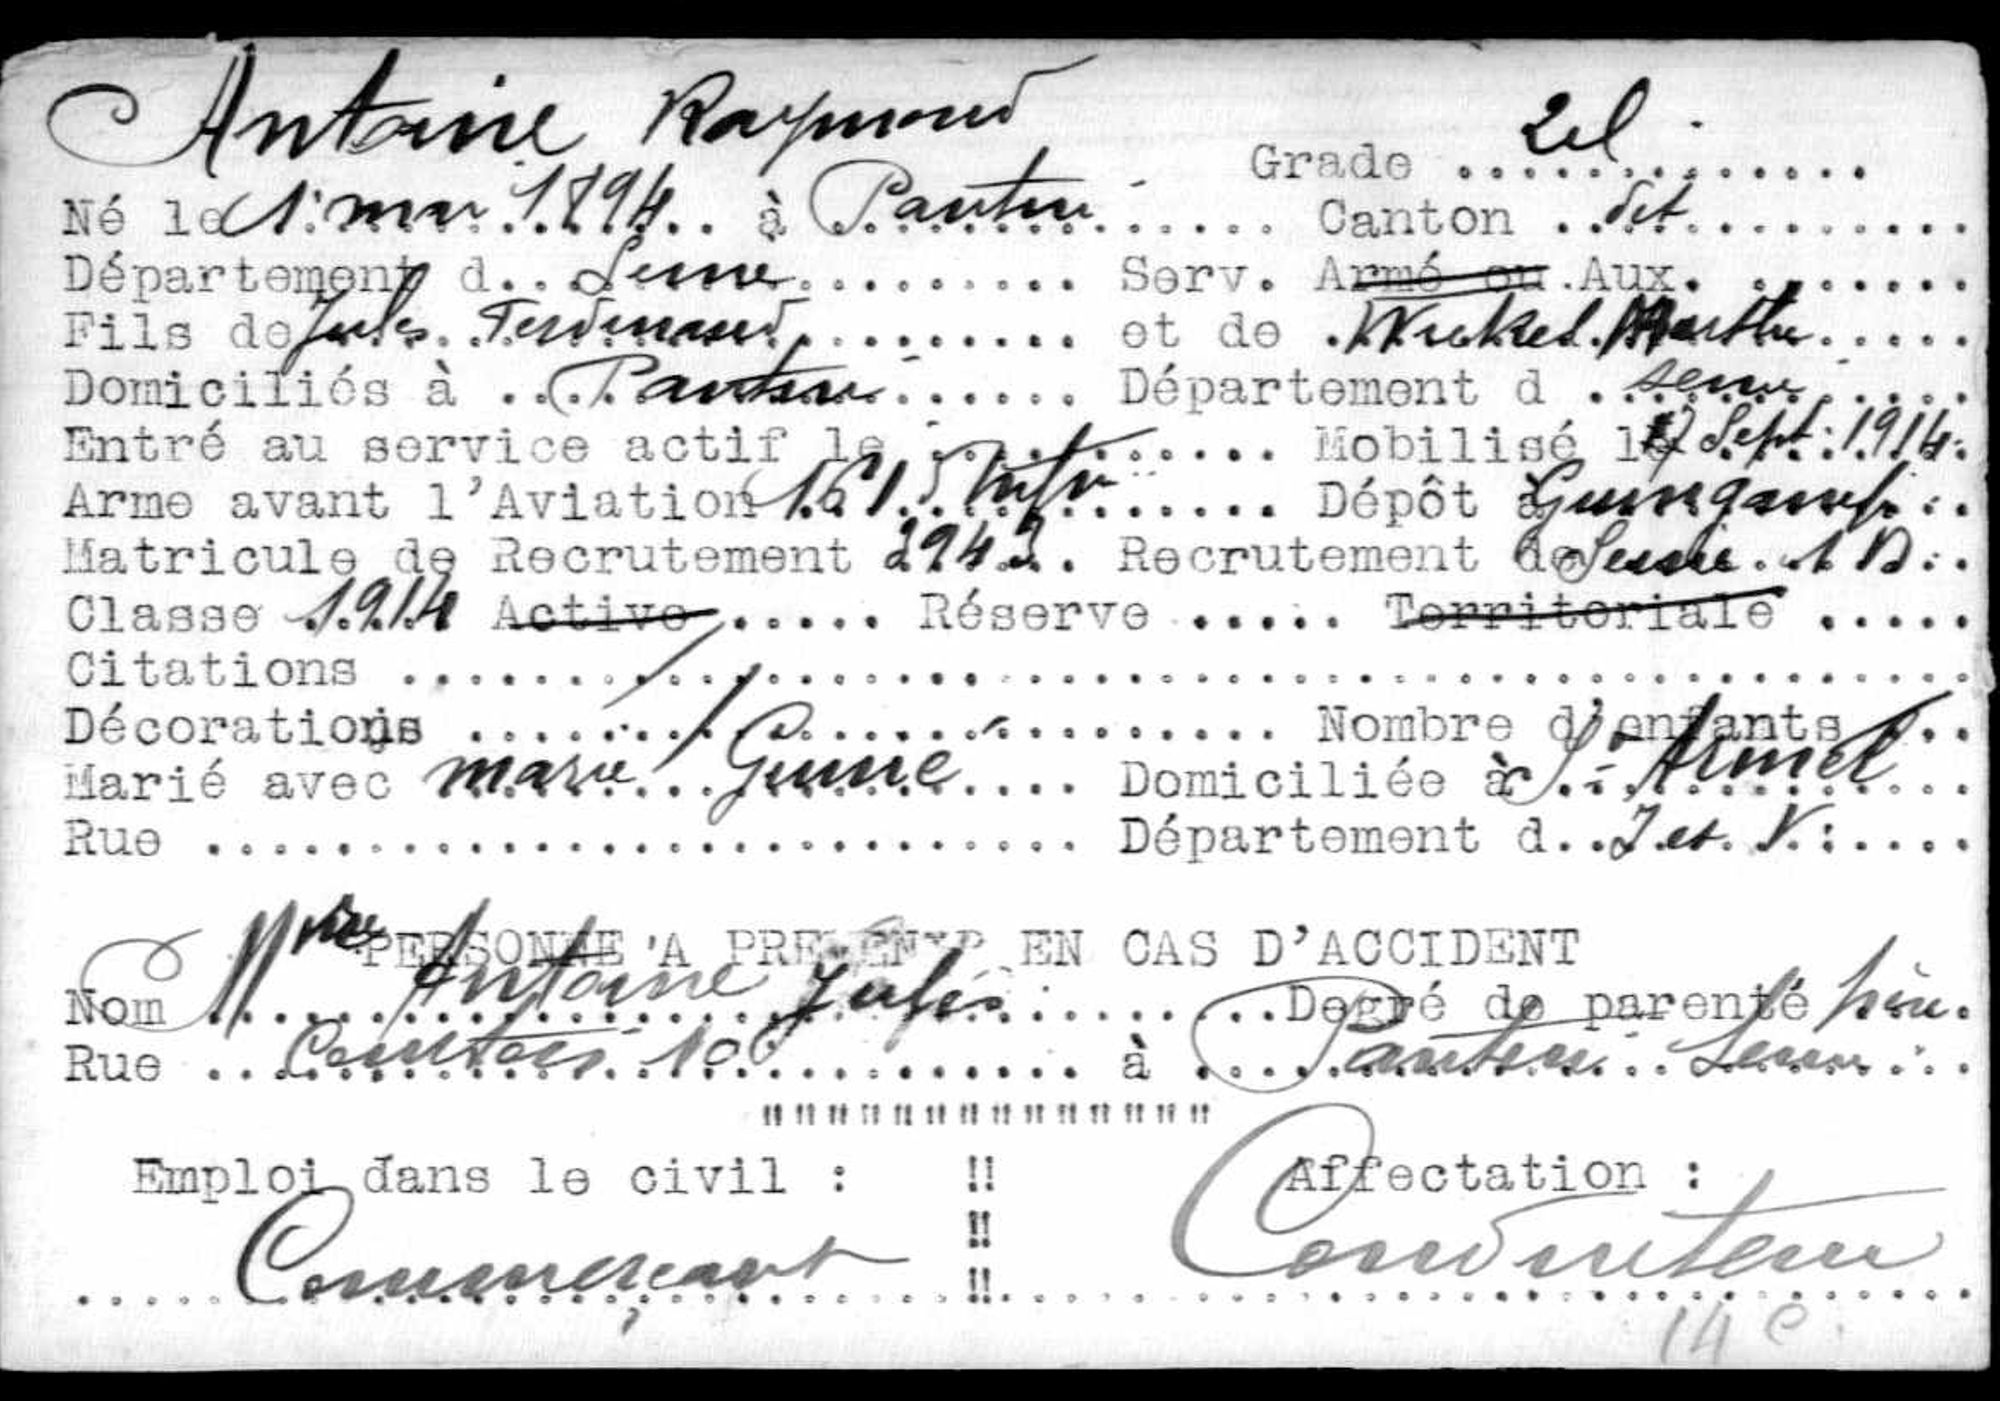 Antoine Raymond
Grade .. 2cl ..
Né le 1 mai 1894 .. à Pantin .. Canton .. dit ..
Département d.. Seine .. Serv. Armé ou Aux. ..
Fils de Jules Ferdinand .. et de . Wickel Marthe ..
Domiciliés à .. Pantin .. Département d .. Seine ..
Entré au service actif le .. Mobilisé le Sept. 1914.
Arme avant l'Aviation 161 Infie .. Dépôt à Guingamp ..
Matricule de Recrutement 2943 . Recrutement de Seine. 1 B..
Classe 1914 Active ..... Réserve ..... Territoriale .....
Citations ..
Décorations .. Nombre d'enfants ..
Marié avec Marie .. Domiciliée à St Armel ..
Rue .. Département d.. I et V. ..
PERSONNE A PREVENIR EN CAS D'ACCIDENT
Nom Antoine Jules .. Degré de parenté père.
Rue .. Courtois 10 .. à .. Pantin .. Seine ..
""""""""""""""
Emploi dans le civil : !! Affectation :
!!
.. Commerçant !! Conducteur ..
14 e